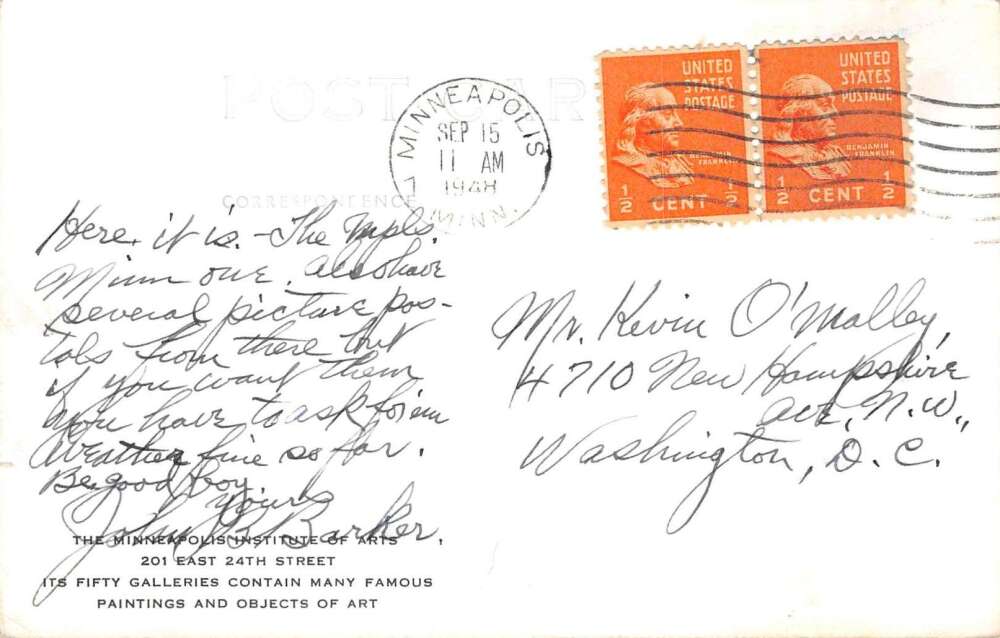 POST CARD
CORRESPONDENCE
MINNEAPOLIS
SEP 15
11 AM
1948
MINN.
UNITED
STATES
POSTAGE
BENJAMIN
FRANKLIN
1/2 CENT 1/2
UNITED
STATES
POSTAGE
BENJAMIN
FRANKLIN
1/2 CENT 1/2
Here it is. - The Mpls.
Minn one. Also have
several picture pos-
tals from there but
if you want them
you have to ask for em
Weather fine so far.
Be good boy.
Yours
John B. Barker.
Mr. Kevin O'Malley,
4710 New Hampshire
Ave, N.W.,
Washington, D.C.
THE MINNEAPOLIS INSTITUTE OF ARTS
201 EAST 24TH STREET
ITS FIFTY GALLERIES CONTAIN MANY FAMOUS
PAINTINGS AND OBJECTS OF ART